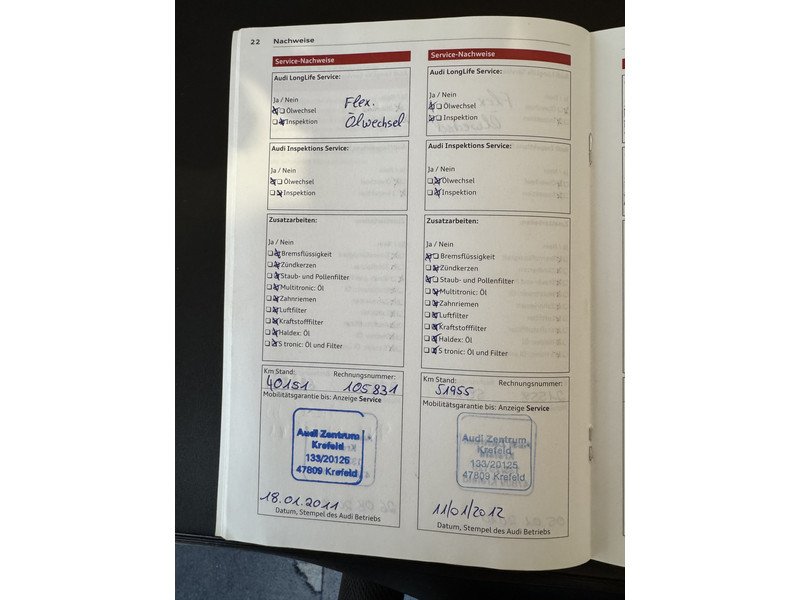 22 Nachweise
Service-Nachweise
Audi LongLife Service:
Ja / Nein
Ölwechsel
Inspektion
Flex.
Ölwechsel
Audi Inspektions Service:
Ja / Nein
Ölwechsel
Inspektion
Zusatzarbeiten:
Ja / Nein
Bremsflüssigkeit
Zündkerzen
Staub- und Pollenfilter
Multitronic: Öl
Zahnriemen
Luftfilter
Kraftstofffilter
Haldex: Öl
S tronic: Öl und Filter
Km Stand: Rechnungsnummer:
40151 105831
Mobilitätsgarantie bis: Anzeige Service
Audi Zentrum
Krefeld
133/20125
47809 Krefeld
18.01.2011
Datum, Stempel des Audi Betriebs
Service-Nachweise
Audi LongLife Service:
Ja / Nein
Ölwechsel
Inspektion
Audi Inspektions Service:
Ja / Nein
Ölwechsel
Inspektion
Zusatzarbeiten:
Ja / Nein
Bremsflüssigkeit
Zündkerzen
Staub- und Pollenfilter
Multitronic: Öl
Zahnriemen
Luftfilter
Kraftstofffilter
Haldex: Öl
S tronic: Öl und Filter
Km Stand: Rechnungsnummer:
51955
Mobilitätsgarantie bis: Anzeige Service
Audi Zentrum
Krefeld
133/20125
47809 Krefeld
11/01/2012
Datum, Stempel des Audi Betriebs